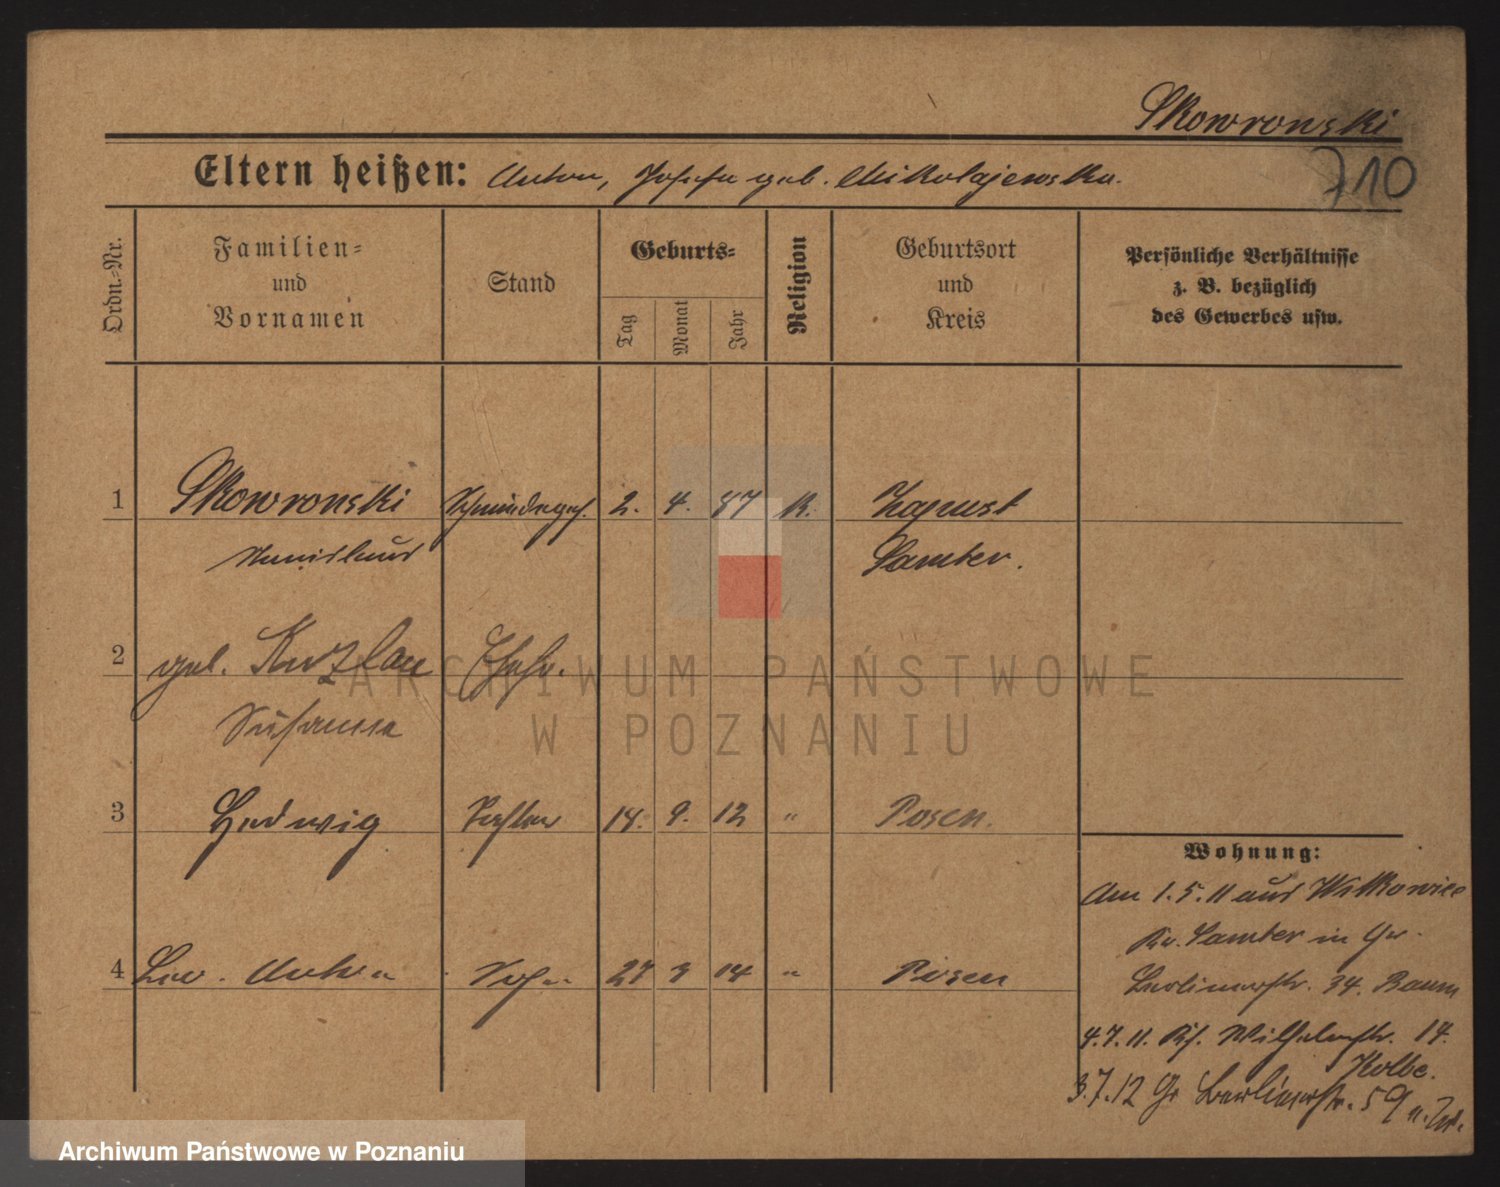 Skowronski
Eltern heißen: Anton, Josefa geb. Mikolajewska.
710
Ordn.-Nr.
Familien-
und
Vornamen
Stand
Geburts-
Tag
Monat
Jahr
Religion
Geburtsort
und
Kreis
Persönliche Verhältnisse
z. B. bezüglich
des Gewerbes usw.
1 Skowronski Schmiedeges. 2. 4. 87 K. Zapust
Stanislaus Samter.
2 geb. Ehefr.
Susanna
3 Hedwig Tochter 14. 9. 12 " Posen.
4 Leo. Anton Sohn 27 9 14 " Posen
Wohnung:
Am 1.5.11 aus Witkowice
Kr. Samter in Gr.
Berlinerstr. 34. Baum
4.7.11. Wilhelmstr. 14.
Kolbe.
3.7.12 Gr Berlinerstr. 59
ARCHIWUM PAŃSTWOWE
W POZNANIU
Archiwum Państwowe w Poznaniu